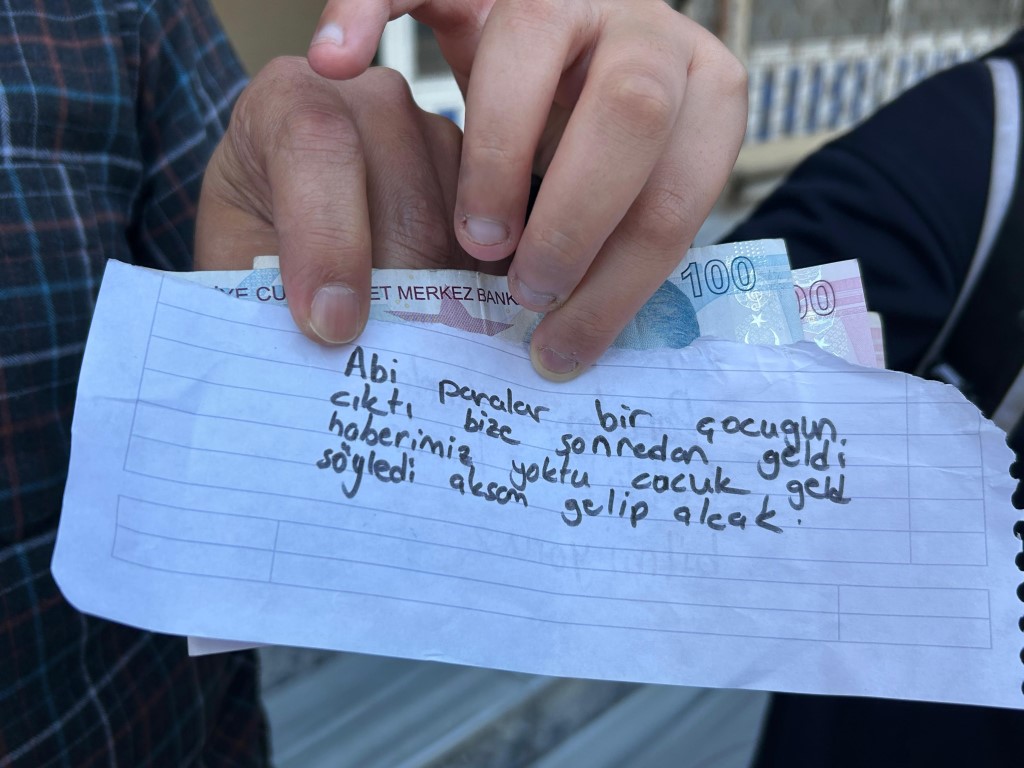 İYE CU ET MERKEZ BANK 100 00
Abi paralar bir çocugun.
cıktı bize sonredan geldi
haberimiz yoktu cocuk geld
söyledi aksam gelip alcak.